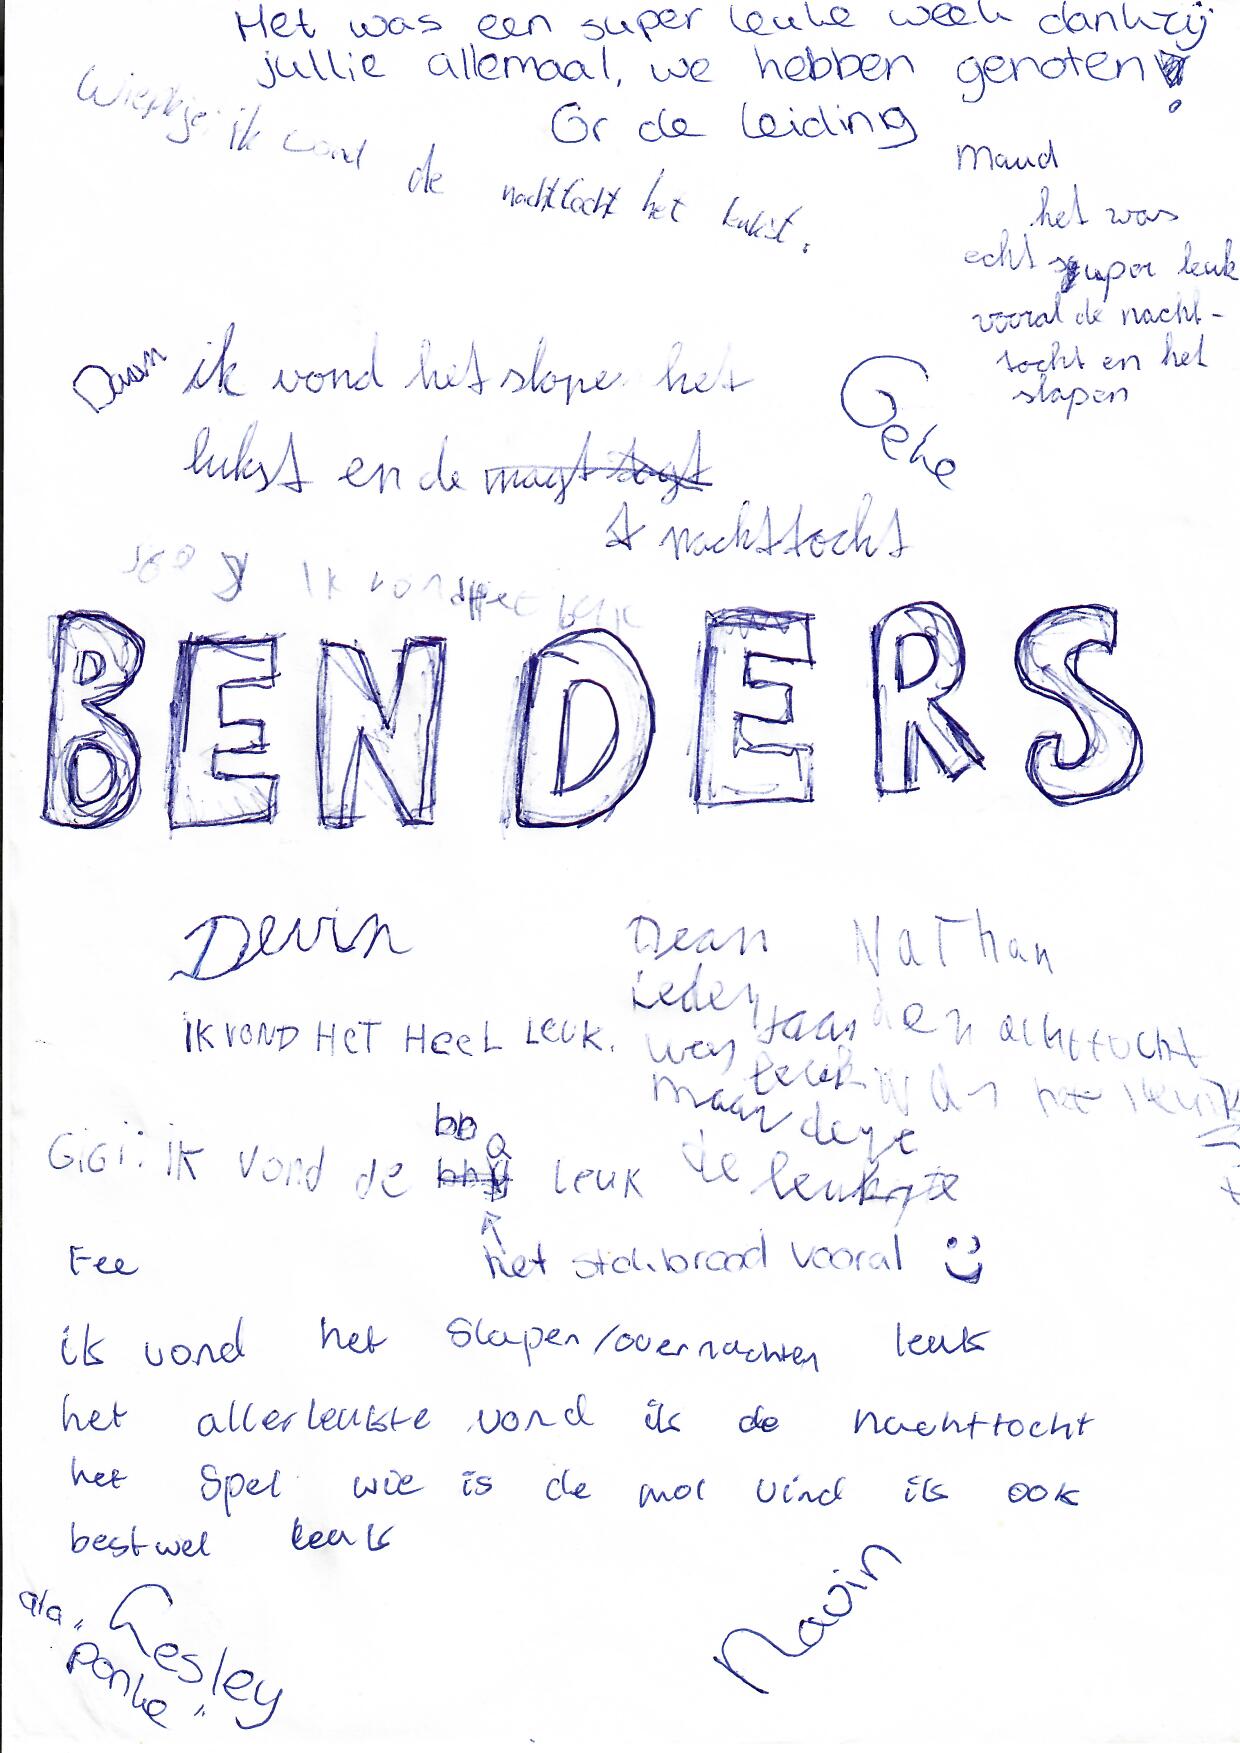 Het was een super leuke week dankzij
jullie allemaal, we hebben genoten!
Gr de leiding
Wiepkje: ik vond de nachttocht het lukst.
Maud
het was
echt super leuk
vooral de nacht-
tocht en het
slapen
Daan ik vond het slape het
lukst en de magt togt
nachttocht
Geke
ik vond het leuk
BENDERS
Devin
IK VOND HET HEEL LEUK.
Dean
ieder jaar
was leuk
maar deze
de leukste
Nathan
de n achttocht
was het leuk
GiGi: ik vond de bbq leuk
het stokbrood vooral
Fee
ik vond het slapen/overnachten leuk
het allerleukste vond ik de nachttocht
het spel wie is de mol vind ik ook
best wel leuk
ala "Lesley
Panke"
Navin